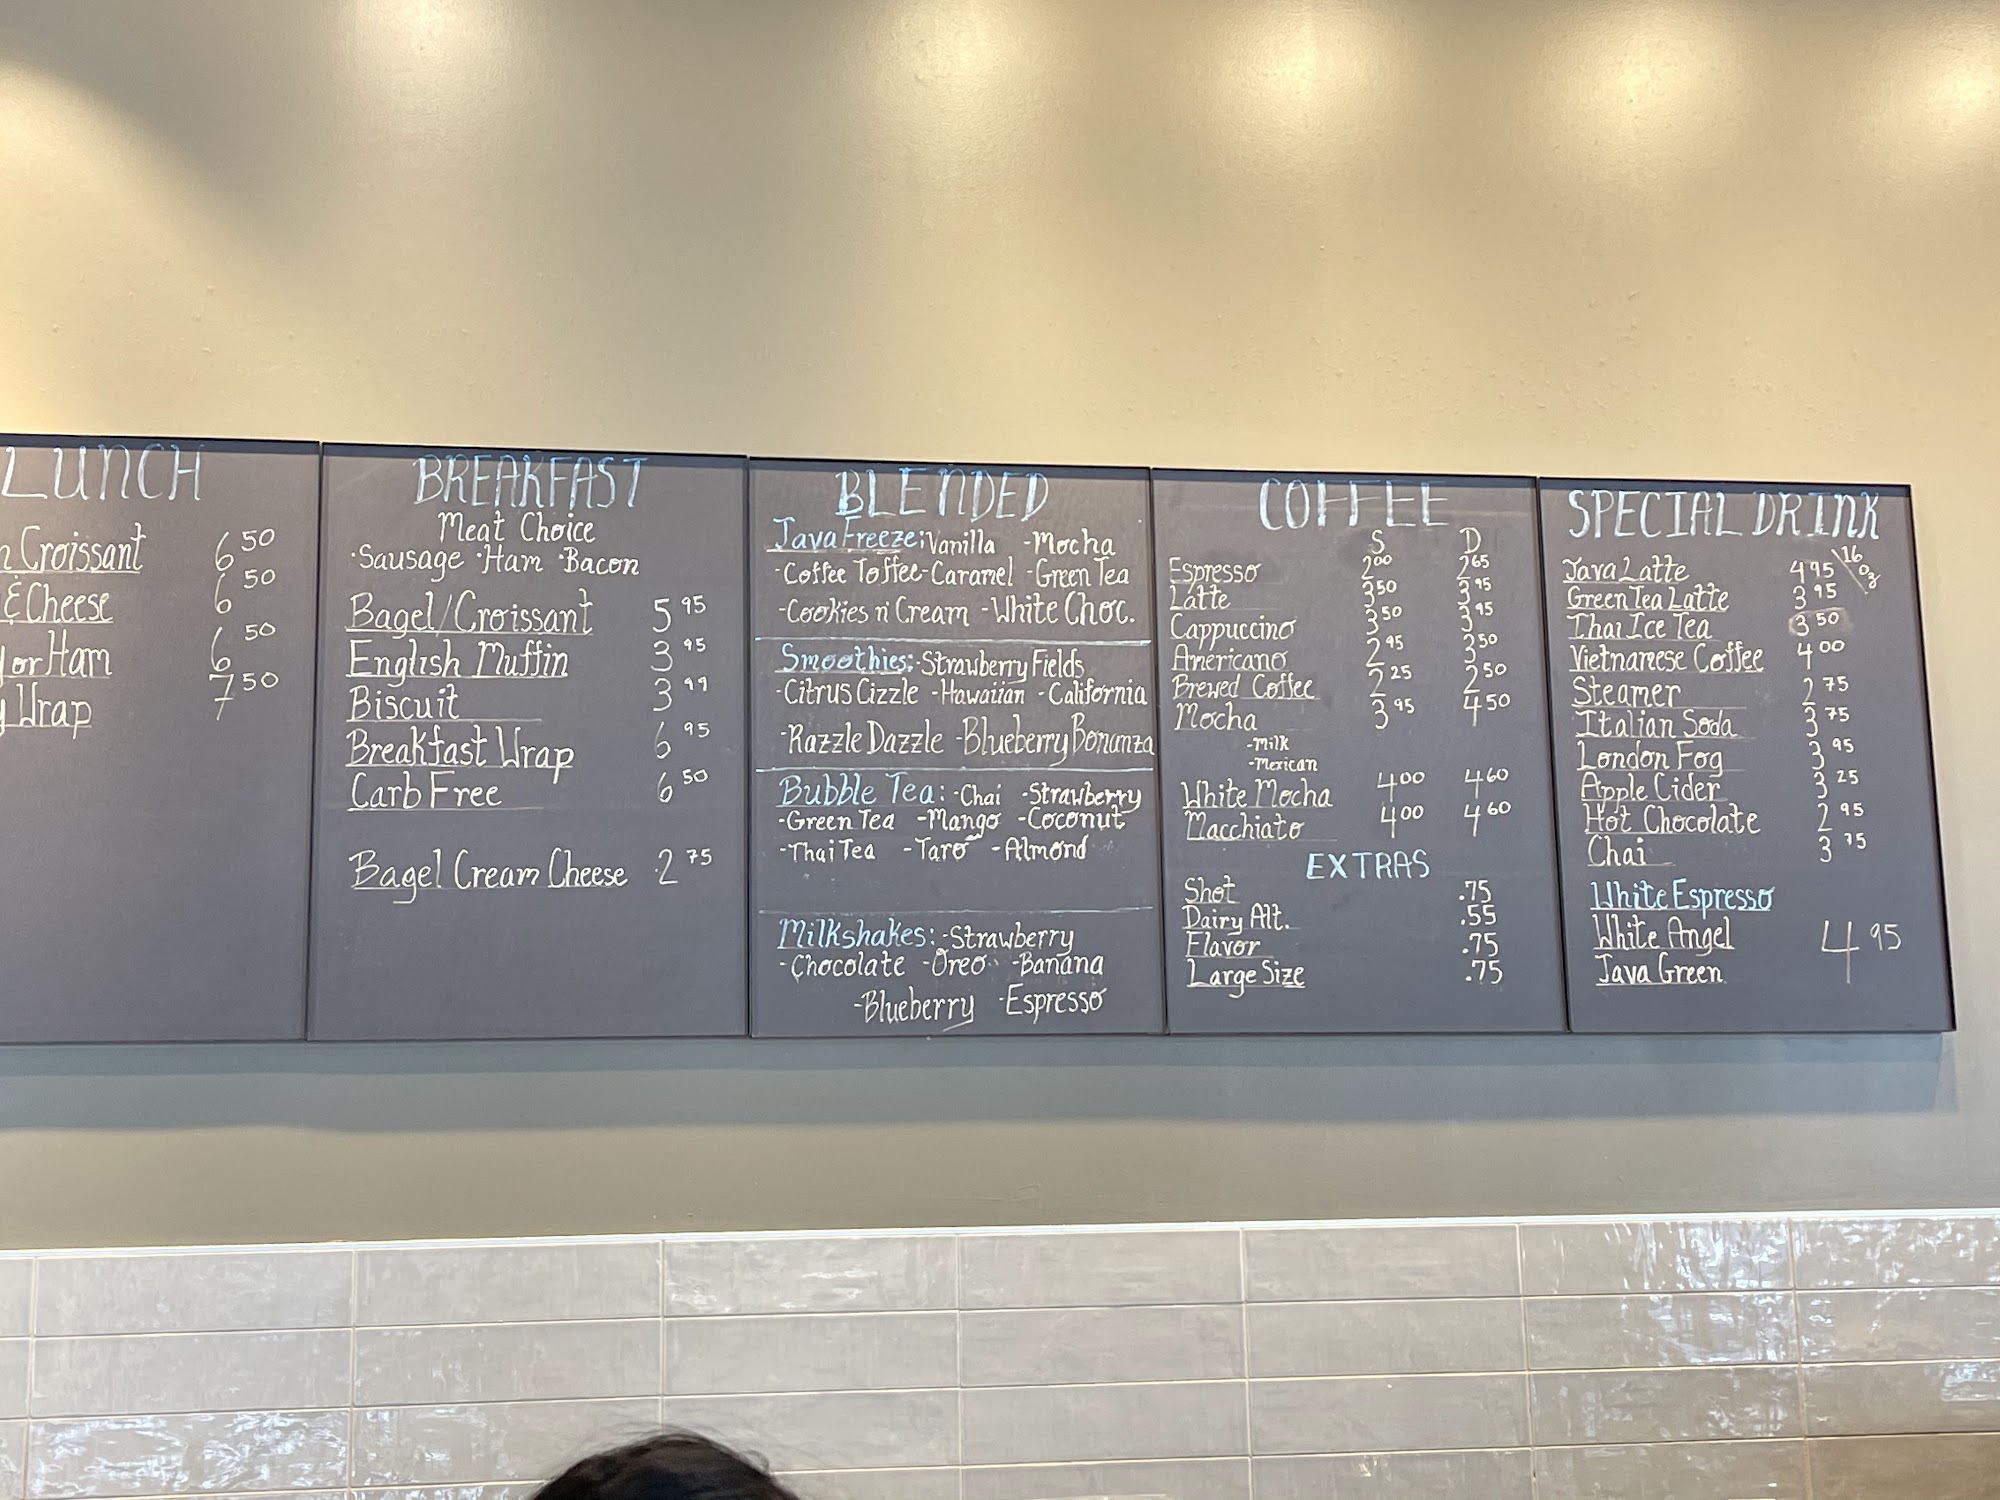 LUNCH
Croissant 6 50
& Cheese 6 50
or Ham 6 50
Wrap 7 50
BREAKFAST
Meat Choice
·Sausage ·Ham ·Bacon
Bagel/Croissant 5 95
English Muffin 3 95
Biscuit 3 99
Breakfast Wrap 6 95
Carb Free 6 50
Bagel Cream Cheese 2 75
BLENDED
Java Freeze: Vanilla -Mocha
-Coffee Toffee -Caramel -Green Tea
-Cookies n' Cream -White Choc.
Smoothies: -Strawberry Fields
-Citrus Cizzle -Hawaiian -California
-Razzle Dazzle -Blueberry Bonanza
Bubble Tea: -Chai -Strawberry
-Green Tea -Mango -Coconut
-Thai Tea -Taro -Almond
Milkshakes: -Strawberry
-Chocolate -Oreo -Banana
-Blueberry -Espresso
COFFEE
S D
Espresso 2 00 2 65
Latte 3 50 3 95
Cappuccino 3 50 3 95
Americano 2 95 3 50
Brewed Coffee 2 25 2 50
Mocha 3 95 4 50
-Milk
-Mexican
White Mocha 4 00 4 60
Macchiato 4 00 4 60
EXTRAS
Shot .75
Dairy Alt. .55
Flavor .75
Large Size .75
SPECIAL DRINK
Java Latte 4 95 16 oz
Green Tea Latte 3 95
Thai Ice Tea 3 50
Vietnamese Coffee 4 00
Steamer 2 75
Italian Soda 3 75
London Fog 3 95
Apple Cider 3 25
Hot Chocolate 2 95
Chai 3 75
White Espresso
White Angel 4 95
Java Green